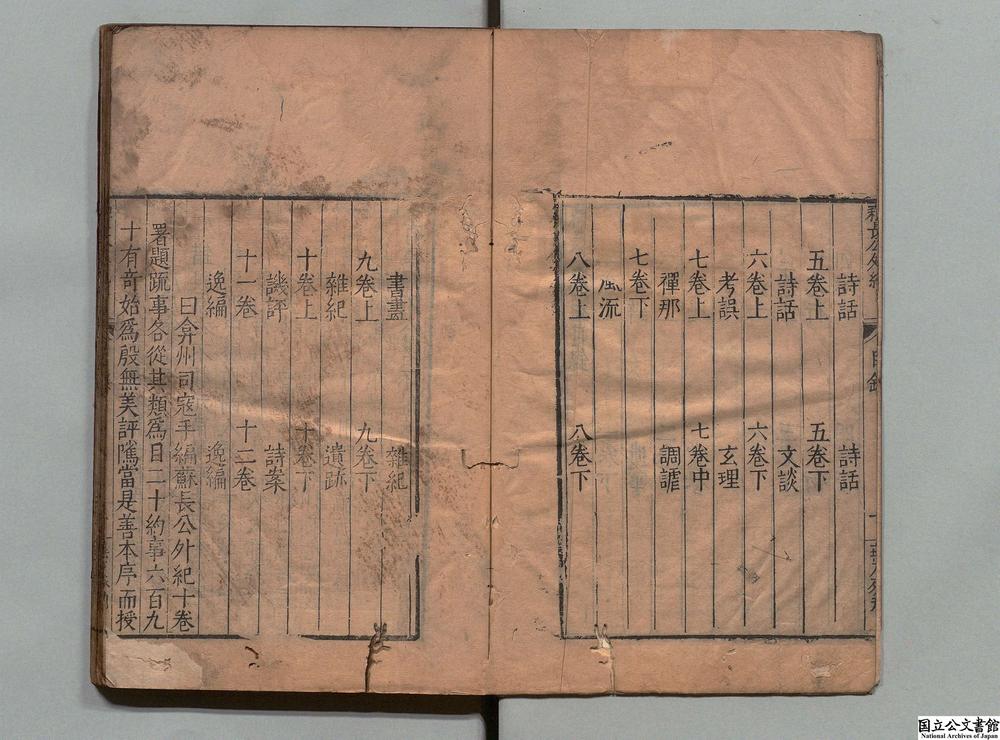 蘇長公外紀 目錄 一
詩話 詩話
五卷上 五卷下
詩話 文談
六卷上 六卷下
考誤 玄理
七卷上 七卷中
禪那 調謔
七卷下
風流
八卷上 八卷下
書畫 雜紀
九卷上 九卷下
雜紀 遺跡
十卷上 十卷下
譏評 詩案
十一卷 十二卷
逸編 逸編
曰弇州司寇手編蘇長公外紀十卷
署題疏事各從其類爲目二十約事六百九
十有奇始爲殷無美評隲當是善本序而授
国立公文書館
National Archives of Japan